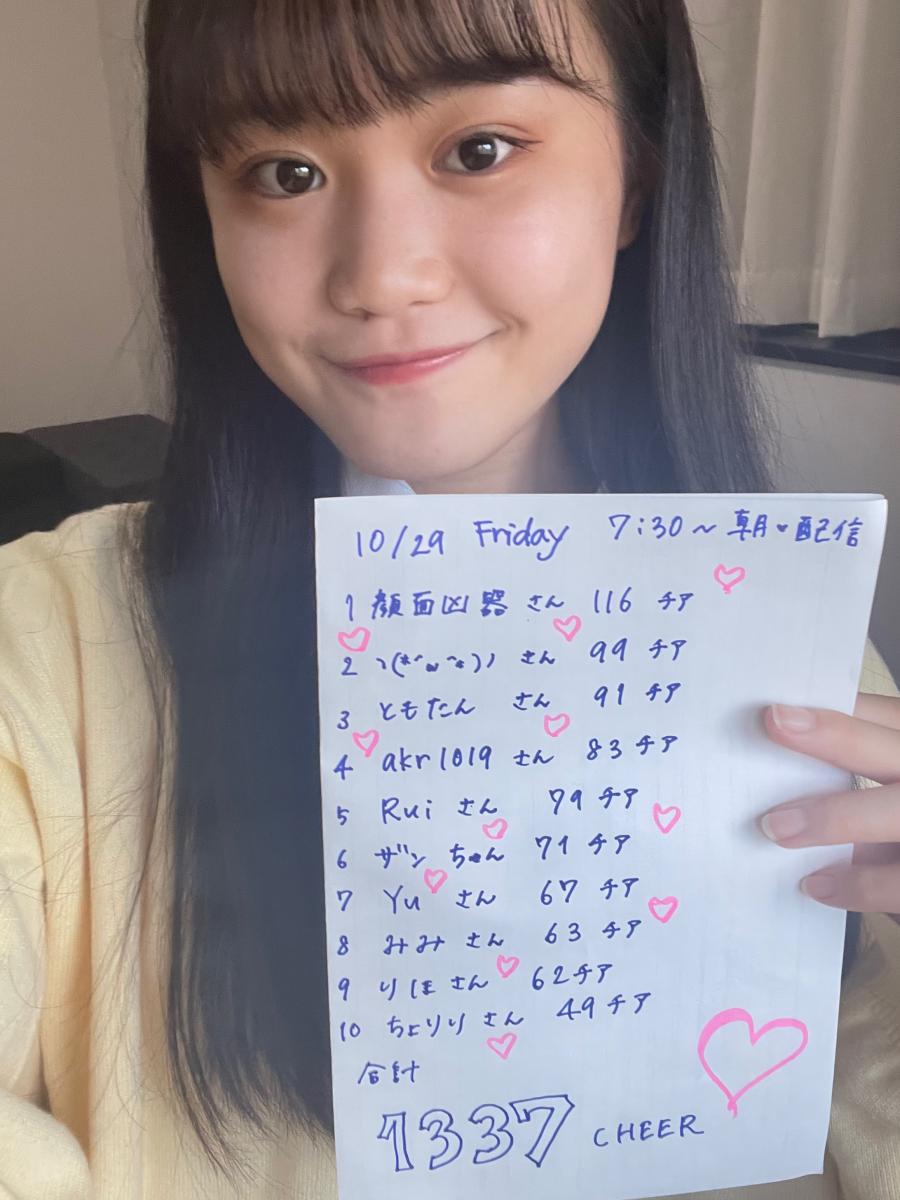 10/29 Friday 7:30～朝♥配信
1 顔面凶器 さん 116 チア
2 ヽ(*´ω`*)ﾉ さん 99 チア
3 ともたん さん 91 チア
4 akr1019 さん 83 チア
5 Rui さん 79 チア
6 ザン ちゃん 71 チア
7 Yu さん 67 チア
8 みみ さん 63 チア
9 りほ さん 62チア
10 ちょりり さん 49 チア
合計
1337 CHEER